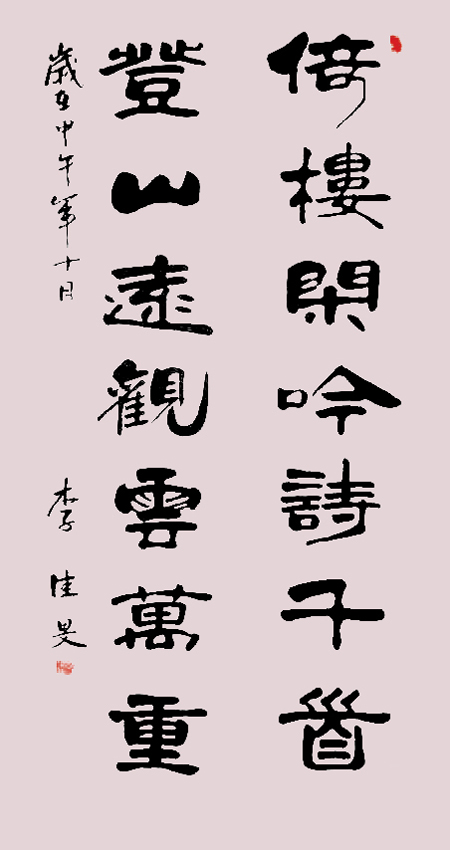 倚樓閑吟詩千首
登山遠觀雲萬重
歲在甲午年十月
李佳旻